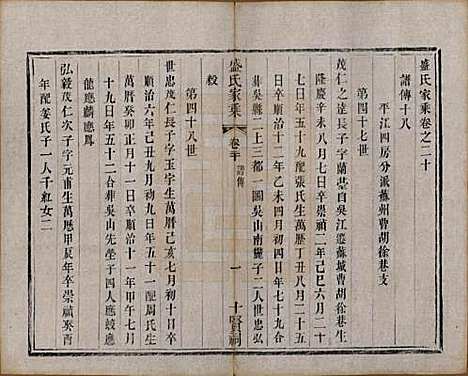 盛氏家乘卷之三十
譜傳十八
平江四房分派蘇州曹胡徐巷支
第四十七世
茂仁之逵長子字蘭棠自吳江遷蘇城曹胡徐巷生
隆慶辛未八月七日卒崇禎二年己巳六月二十
日年五十九配張氏生萬曆丁丑八月八月二十五
日卒順治十二年乙未四月初七日年七十九合
葬吳縣二上三都一圖吳山南麓子二人世忠弘
毅
盛氏家乘
卷三十
譜傳
一
十賢祠
第四十八世
世忠茂仁長子字玉字生萬曆己亥七月初十日卒
順治六年己丑月初九日年五十一配周氏生
萬曆癸卯正月十一日卒順治十一年甲午七月
十九日年五十二合葬吳山先塋子四人應蛟應
龍應麟應鳳
弘毅茂仁次子字元甫生萬曆甲辰年卒崇禎癸酉
年配姜氏子一人千紅女二